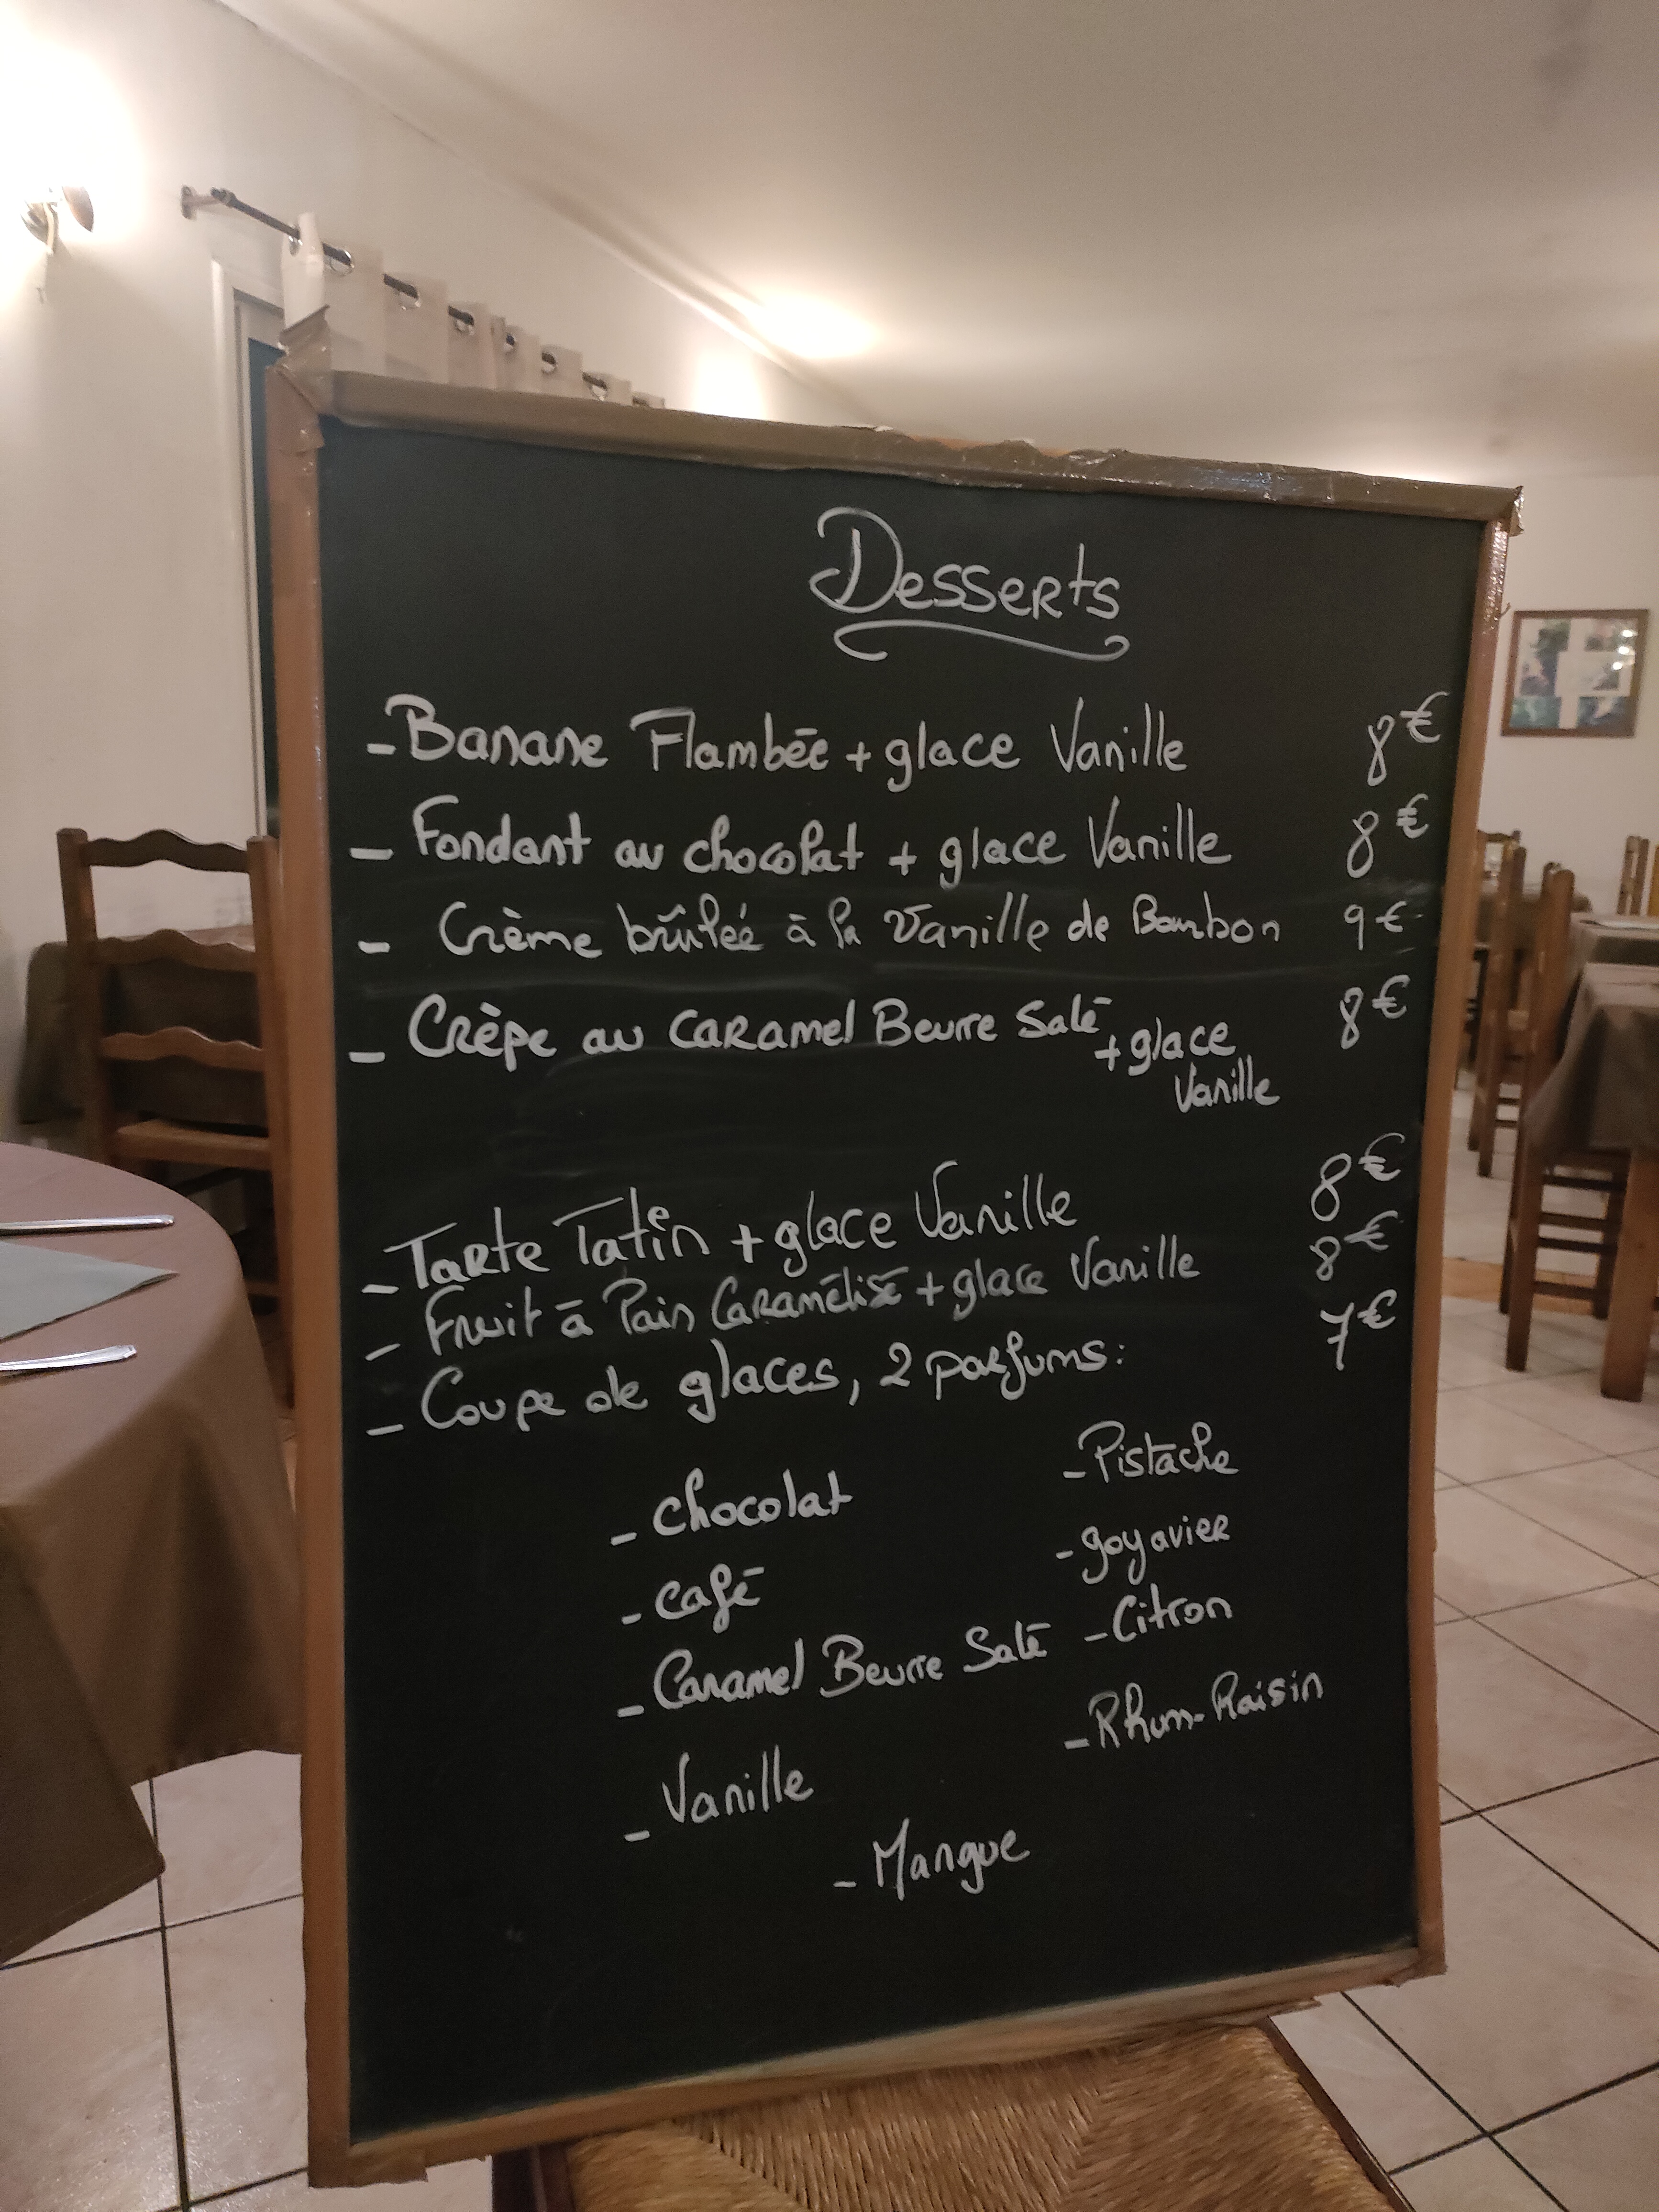 Desserts
- Banane Flambée + glace Vanille 8€
- Fondant au chocolat + glace Vanille 8€
- Crème brûlée à la Vanille de Bourbon 9€
- Crèpe au caramel Beurre Salé + glace 8€
Vanille
- Tarte Tatin + glace Vanille 8€
- Fruit à Pain Caramélisé + glace Vanille 8€
- Coupe de glaces, 2 parfums: 7€
- chocolat
- café
- Caramel Beurre Salé
- Vanille
- Pistache
- goyavier
- Citron
- Rhum-Raisin
- Mangue